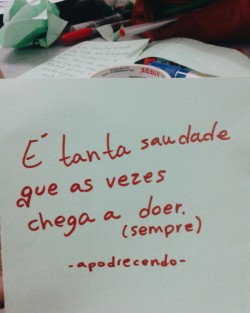 É tanta saudade
que as vezes
chega a doer.
(sempre)
-apodrecendo-